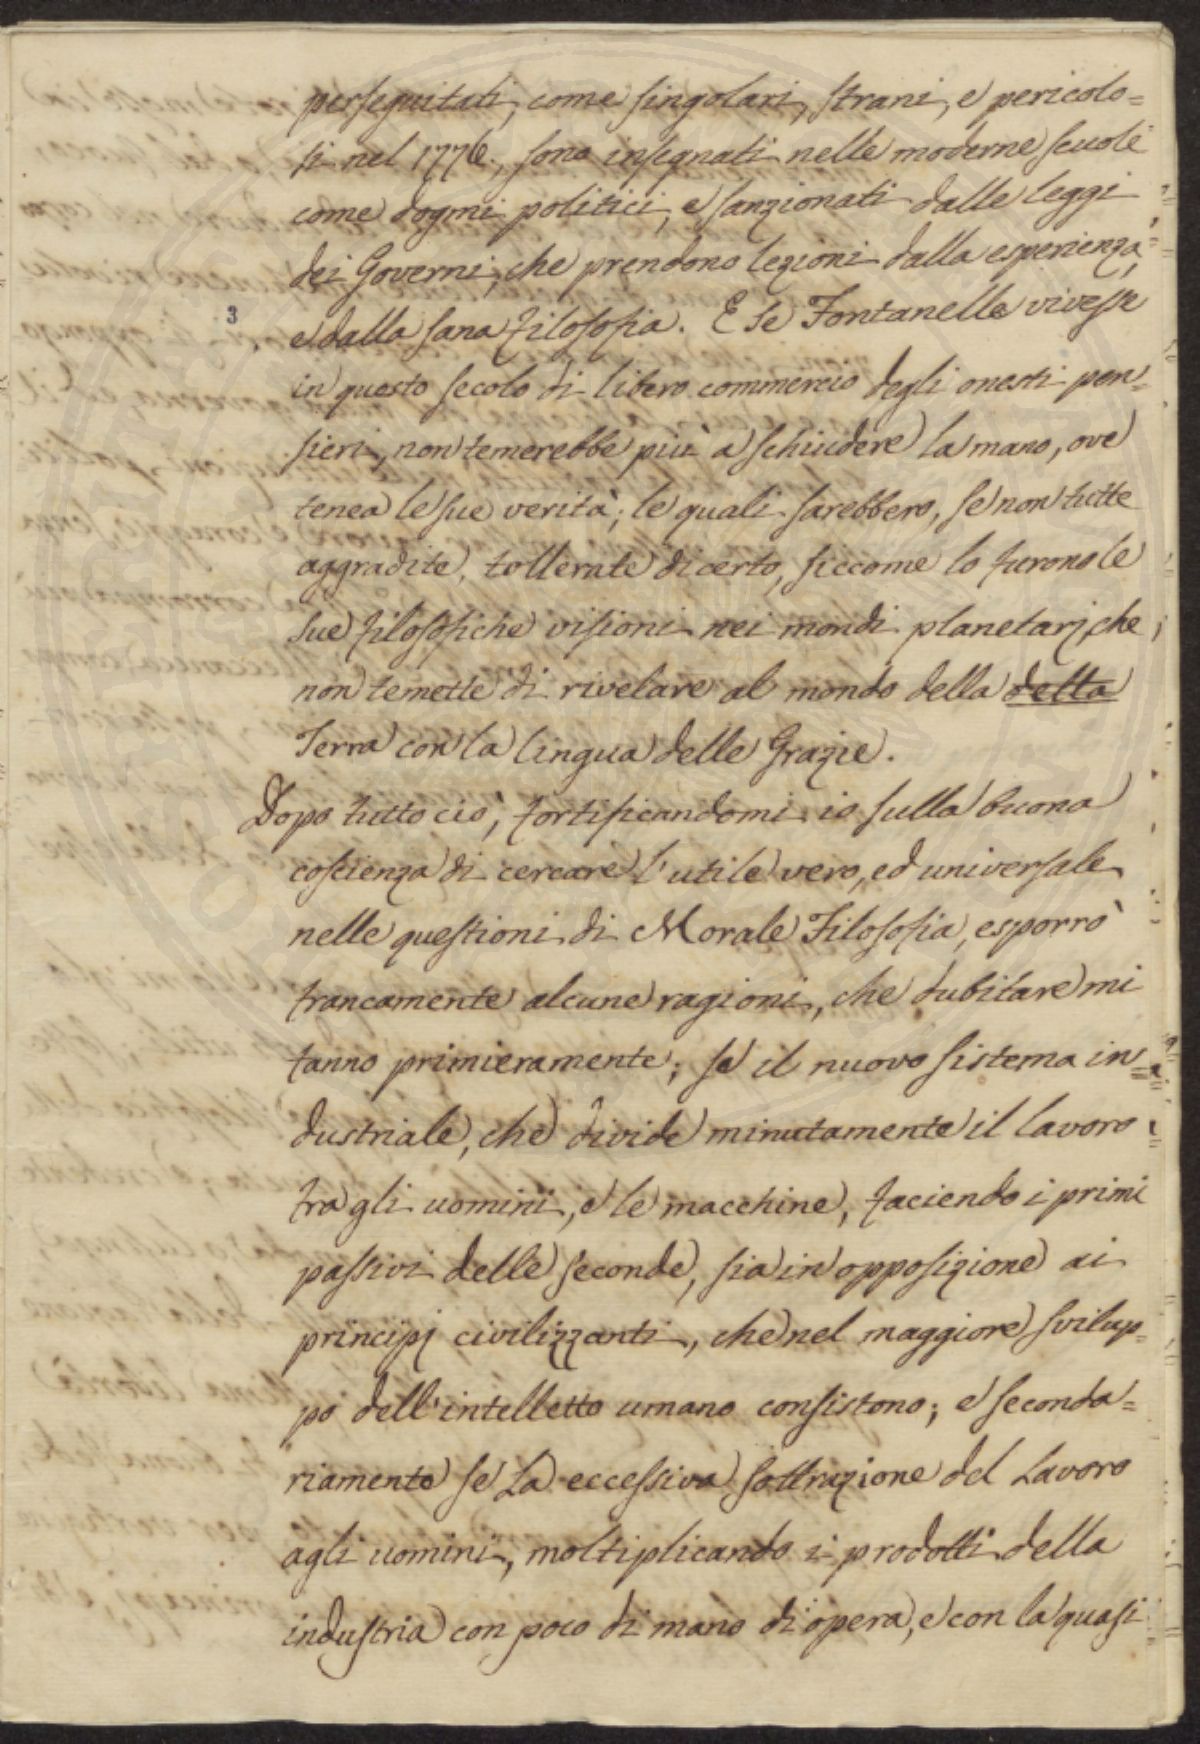 perseguitati, come singolari, strani, e pericolo=
si nel 1776., sono insegnati nelle moderne scuole
come dogmi politici, e sanzionati dalle leggi
dei Governi, che prendono lezioni dalla esperienza,
3
e dalla sana filosofia. E se Fontanelle vivesse
in questo secolo di libero commercio degli onesti pen=
sieri, non temerebbe più a schiudere la mano, ove
tenea le sue verità; le quali sarebbero, se non tutte
aggradite, tollerate di certo, siccome lo furono le
sue filosofiche visioni nei mondi planetarj, che
non temette di rivelare al mondo della della
Terra con la lingua delle Grazie.
Dopo tutto ciò, fortificandomi io sulla buona
coscienza di cercare l'utile vero, ed universale
nelle questioni di Morale Filosofia, esporrò
francamente alcune ragioni, che dubitare mi
fanno primieramente; se il nuovo sistema in=
dustriale, che divide minutamente il lavoro
fra gli uomini, e le macchine, faciendo i primi
passivi delle seconde, sia in opposizione ai
principj civilizzanti, che nel maggiore svilup=
po dell'intelletto umano consistono; e seconda=
riamente se la eccessiva sottrazione del lavoro
agli uomini, moltiplicando i prodotti della
industria con poco di mano di opera, e con la quasi